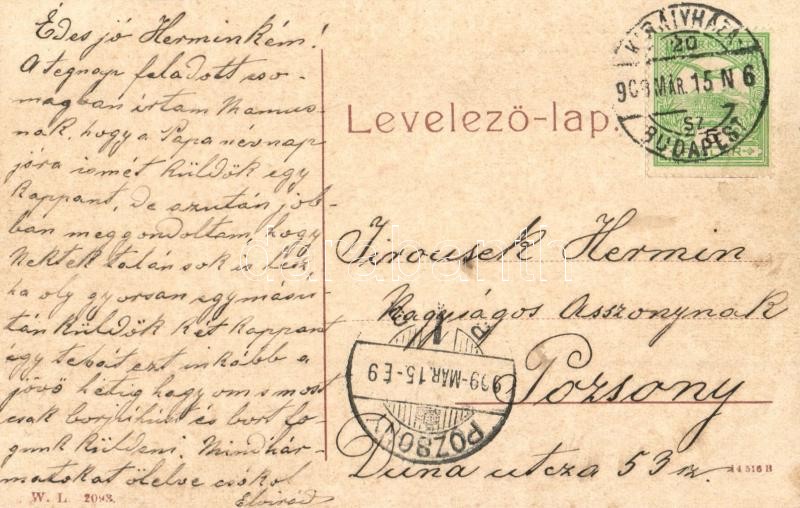 Édes jó Herminkém!
A tegnap feladott cso-
magban írtam Mamus-
nak, hogy a Papa névnap
jóra ismét küldök egy
kappant, de azután job-
ban meggondoltam, hogy
Nektek talán sok is lesz
ha oly gyorsan egymásu-
tán küldök két kappant
égy tehát ezt inkább a
jövő hétig hagyom s most
csak borjúhúst és bort fo-
gunk küldeni. Mindhár-
matokat ölelve csókol
Elvirád
W. L. 2093.
KIRÁLYHÁZA
20
909 MÁR. 15 N 6
57
BUDAPEST
Levelező-lap.
Jirousek Hermin
Nagyságos Asszonynak
Pozsony
Duna utcza 53 sz.
909 MÁR. 15-E 9
POZSONY
14516 B
darabanth